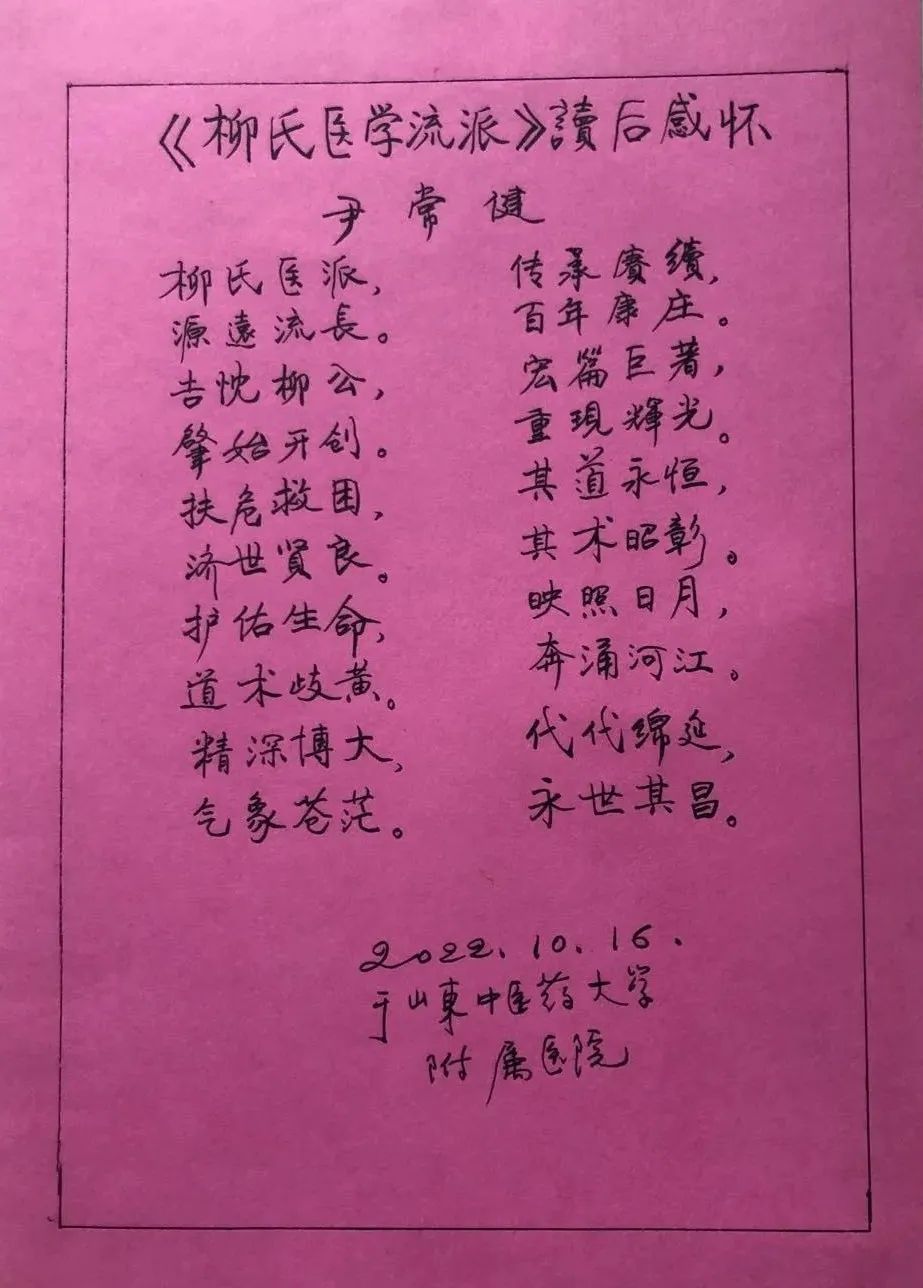 《柳氏医学流派》讀后感怀
尹常健
柳氏医派，
源遠流長。
吉忱柳公，
肇始开创。
扶危救困，
济世賢良。
护佑生命，
道术歧黄。
精深博大，
气象苍茫。
传承赓續，
百年康庄。
宏篇巨著，
重現輝光。
其道永恒，
其术昭彰。
映照日月，
奔涌河江。
代代绵延，
永世其昌。
2022.10.16.
于山東中医药大学
附属医院